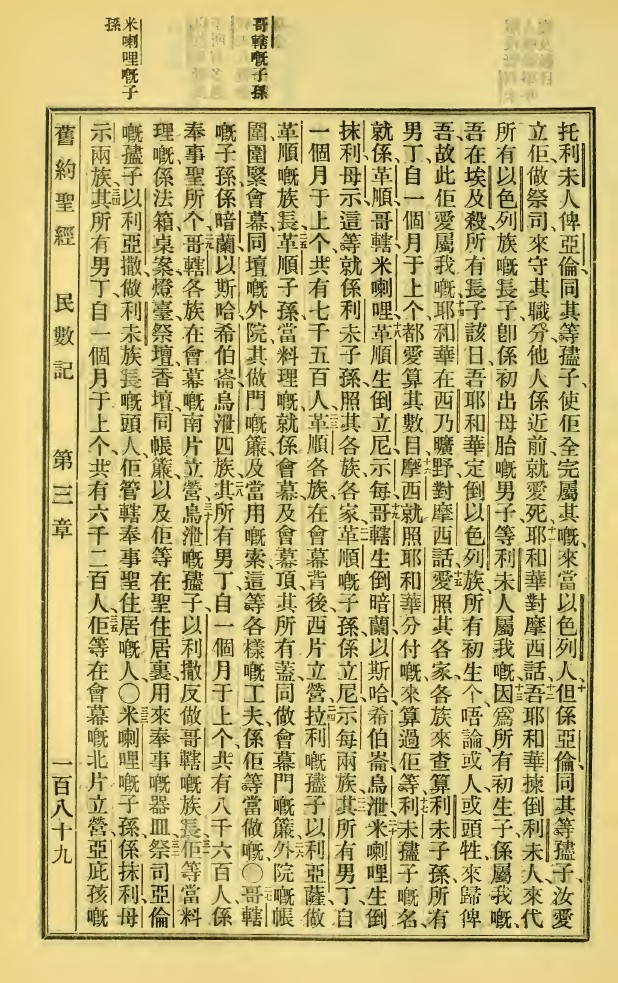 哥轄嘅子孫
米喇哩嘅子
孫
托利未人俾亞倫同其等孻子使佢全完屬其嘅來當以色列人但係亞倫同其等孻子汝愛
立佢做祭司來守其職分他人係近前就愛死耶和華對摩西話吾耶和華揀倒利未人來代
所有以色列族嘅長子卽係初出母胎嘅男子等利未人屬我嘅因爲所有初生子係屬我嘅
吾在埃及殺所有長子該日吾耶和華定倒以色列族所有初生个唔論或人或頭牲來歸俾
吾故此佢愛屬我嘅耶和華在西乃曠野對摩西話愛照其各家各族來查算利未子孫所有
男丁自一個月于上个都愛算其數目摩西就照耶和華分付嘅來算過佢等利未孻子嘅名
就係革順哥轄米喇哩革順生倒立尼示每哥轄生倒暗蘭以斯哈希伯崙烏泄米喇哩生倒
抹利母示這等就係利未子孫照其各族各家革順嘅子孫係立尼示每兩族其所有男丁自
一個月于上个共有七千五百人革順各族在會幕背後西片立營拉利嘅孻子以利亞薩做
革順嘅族長革順子孫當料理嘅就係會幕及會幕頂其所有蓋同做會幕門嘅簾外院嘅帳
圍圍緊會幕同壇嘅外院其做門嘅簾及當用嘅索這等各樣嘅工夫係佢等當做嘅〇哥轄
嘅子孫係暗蘭以斯哈希伯崙烏泄四族其所有男丁自一個月于上个共有八千六百人係
奉事聖所个哥轄各族在會幕嘅南片立營烏泄嘅孻子以利撒反做哥轄嘅族長佢等當料
理嘅係法箱桌案燈臺祭壇香壇同帳簾以及佢等在聖住居裏用來奉事嘅器皿祭司亞倫
嘅孻子以利亞撒做利未族長嘅頭人佢管轄奉事聖住居嘅人〇米喇哩嘅子孫係抹利母
示兩族其所有男丁自一個月于上个共有六千二百人佢等在會幕嘅北片立營亞庇孩嘅
舊約聖經 民數記 第三章 一百八十九